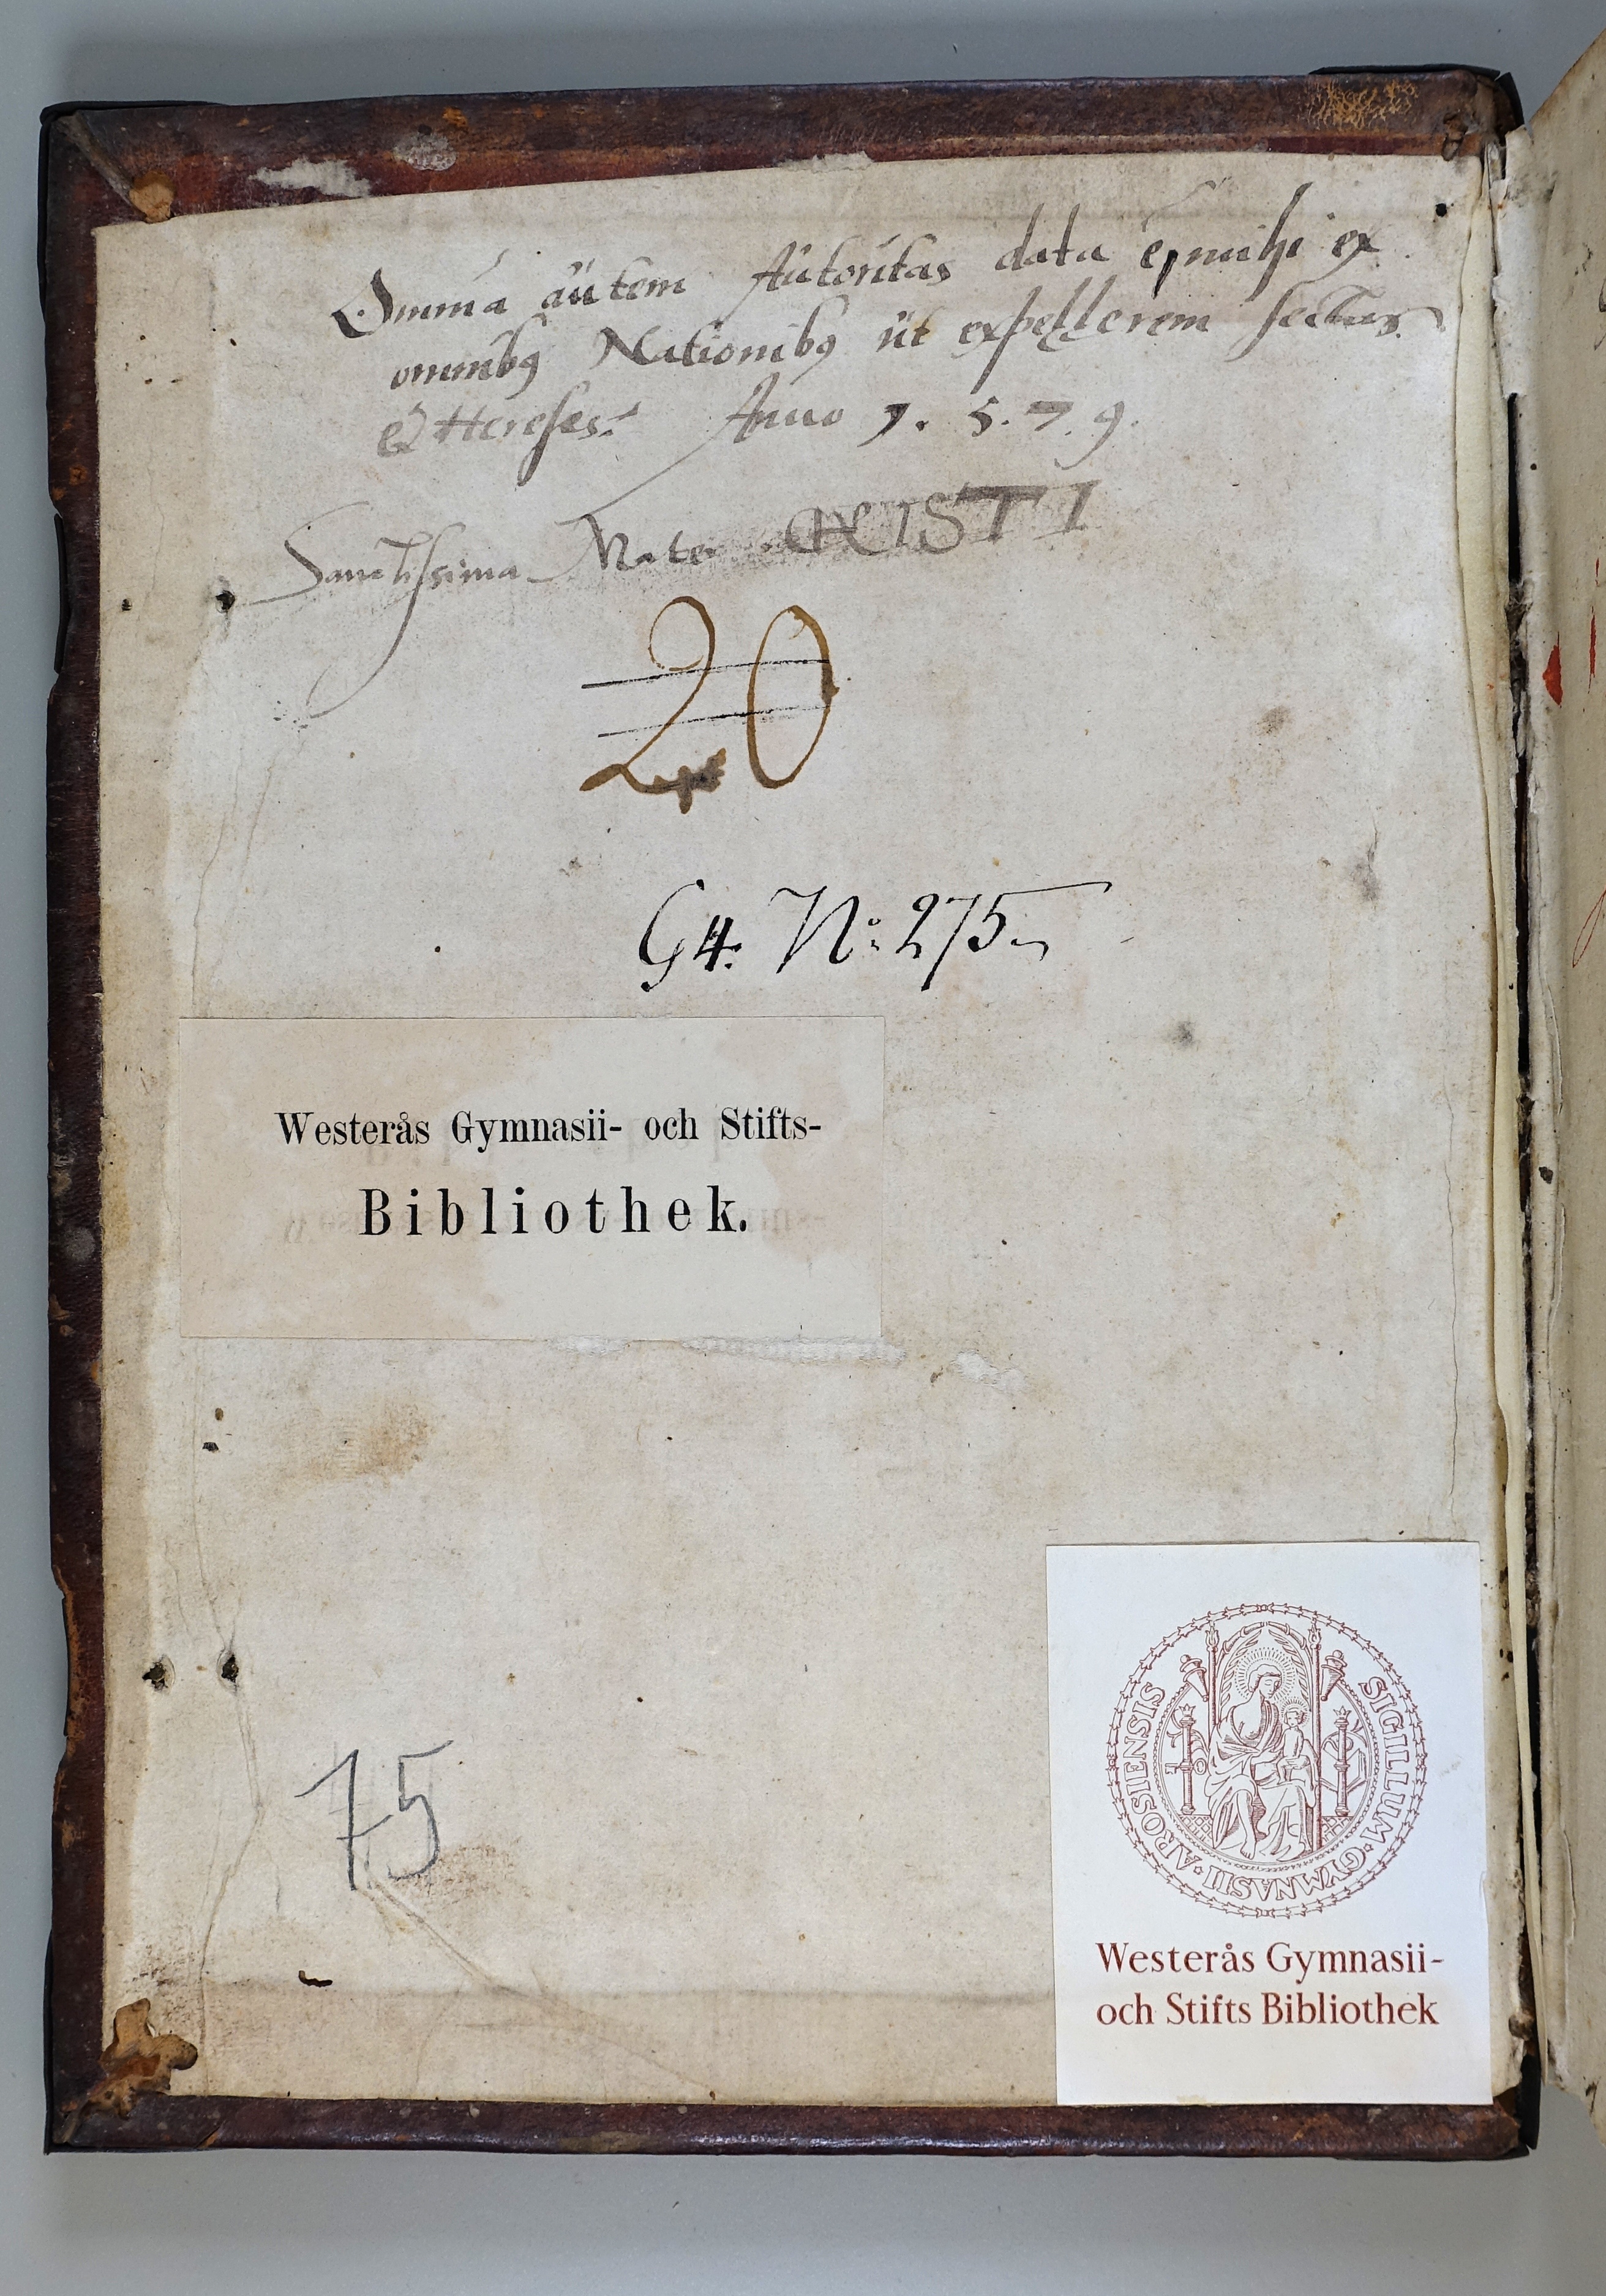 Omnia autem Autoritas data e mihi ex
omnibꝯ Nationibꝯ ut expellerem sectas
et Hereses. Anno 1. 5. 7. 9.
Sanctissima Mater CHRISTI
20
G4. No: 275
Westerås Gymnasii- och Stifts-
Bibliothek.
75
SIGILLUM · GYMNASII · AROSIENSIS
Westerås Gymnasii-
och Stifts Bibliothek